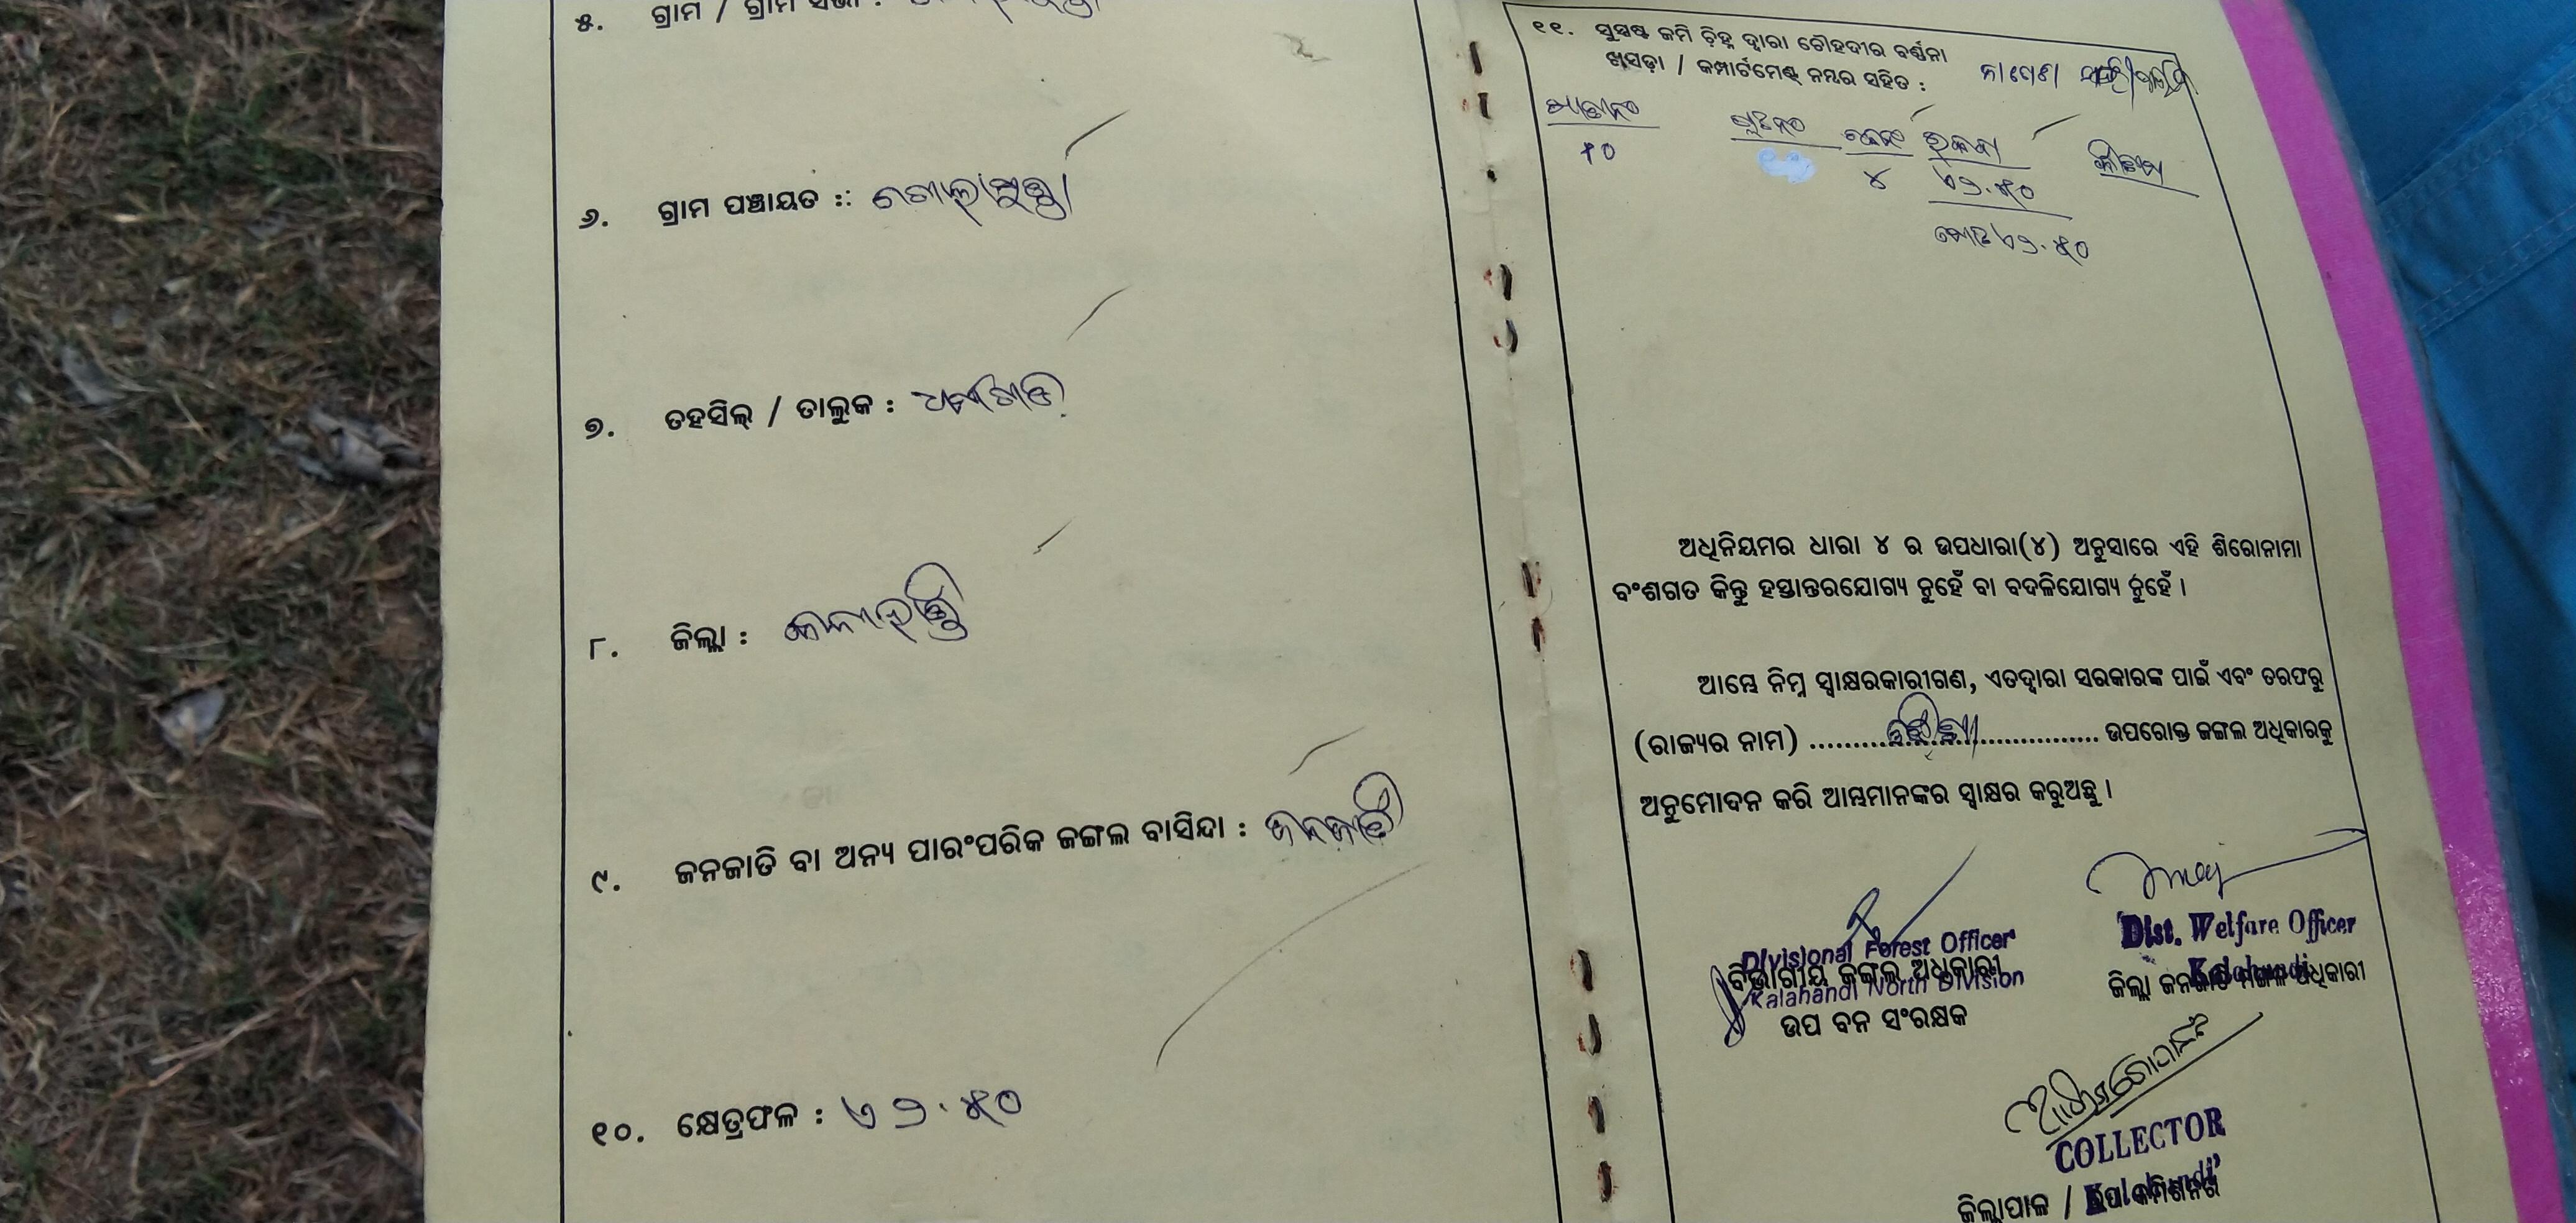 ୫. ଗ୍ରାମ / ଗ୍ରାମ ସଭା :
୬. ଗ୍ରାମ ପଞ୍ଚାୟତ :: ଗୋଲାମୁଣ୍ଡା
୭. ତହସିଲ୍ / ତାଲୁକ : ଧର୍ମଗଡ
୮. ଜିଲ୍ଲା : କଳାହାଣ୍ଡି
୯. ଜନଜାତି ବା ଅନ୍ୟ ପାରଂପରିକ ଜଙ୍ଗଲ ବାସିନ୍ଦା : ଜନଜାତି
୧୦. କ୍ଷେତ୍ରଫଳ : ଏ ୨.୫୦
୧୧. ସୁସ୍ପଷ୍ଟ ଜମି ଚିହ୍ନ ଦ୍ୱାରା ଚୌହଦୀର ବର୍ଣ୍ଣନା
ଖସଡ଼ା / କମ୍ପାର୍ଟମେଣ୍ଟ ନମ୍ବର ସହିତ :
ଖାତାନଂ ପ୍ଲଟନଂ ଚକନଂ ରକବା କିସମ
୧୦ ୪ ଏ୨.୫୦
ମୋଟ ଏ୨.୫୦
ଅଧିନିୟମର ଧାରା ୪ ର ଉପଧାରା(୪) ଅନୁସାରେ ଏହି ଶିରୋନାମା
ବଂଶଗତ କିନ୍ତୁ ହସ୍ତାନ୍ତରଯୋଗ୍ୟ ନୁହେଁ ବା ବଦଳିଯୋଗ୍ୟ ନୁହେଁ ।
ଆମ୍ଭେ ନିମ୍ନ ସ୍ୱାକ୍ଷରକାରୀଗଣ, ଏତଦ୍ୱାରା ସରକାରଙ୍କ ପାଇଁ ଏବଂ ତରଫରୁ
(ରାଜ୍ୟର ନାମ) ........ ଓଡ଼ିଶା ........ ଉପରୋକ୍ତ ଜଙ୍ଗଲ ଅଧିକାରକୁ
ଅନୁମୋଦନ କରି ଆମ୍ଭମାନଙ୍କର ସ୍ୱାକ୍ଷର କରୁଅଛୁ ।
Divisional Forest Officer
ବିଭାଗୀୟ ଜଙ୍ଗଲ ଅଧିକାରୀ
Kalahandi North Division
ଉପ ବନ ସଂରକ୍ଷକ
Dist. Welfare Officer
Kalahandi
ଜିଲ୍ଲା ଜନଜାତି ମଙ୍ଗଳ ଅଧିକାରୀ
COLLECTOR
Kalahandi
ଜିଲ୍ଲାପାଳ / ଉପ କମିଶନର